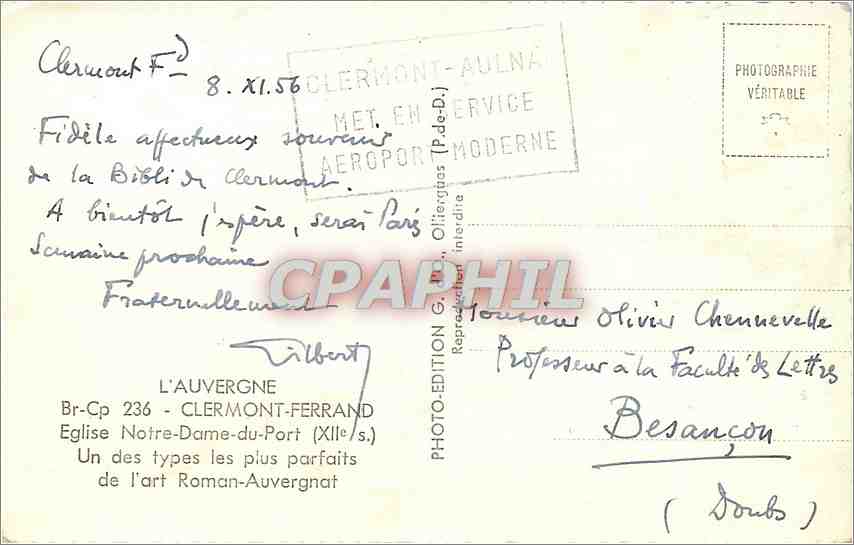 Clermont Fd
8. XI. 56
Fidèle affectueux souvenir
de la Bibli de Clermont.
A bientôt j'espère, serai Paris
Semaine prochaine
Fraternellement
Gilbert
L'AUVERGNE
Br-Cp 236 - CLERMONT-FERRAND
Eglise Notre-Dame-du-Port (XIIe s.)
Un des types les plus parfaits
de l'art Roman-Auvergnat
CLERMONT-AULNA
MET EN SERVICE
AEROPORT MODERNE
PHOTO-EDITION G. Olliergues (P.-de-D.)
Reproduction interdite
CPAPHIL
PHOTOGRAPHIE
VÉRITABLE
Monsieur Olivier Chennevelle
Professeur à la Faculté des Lettres
Besançon
(Doubs)